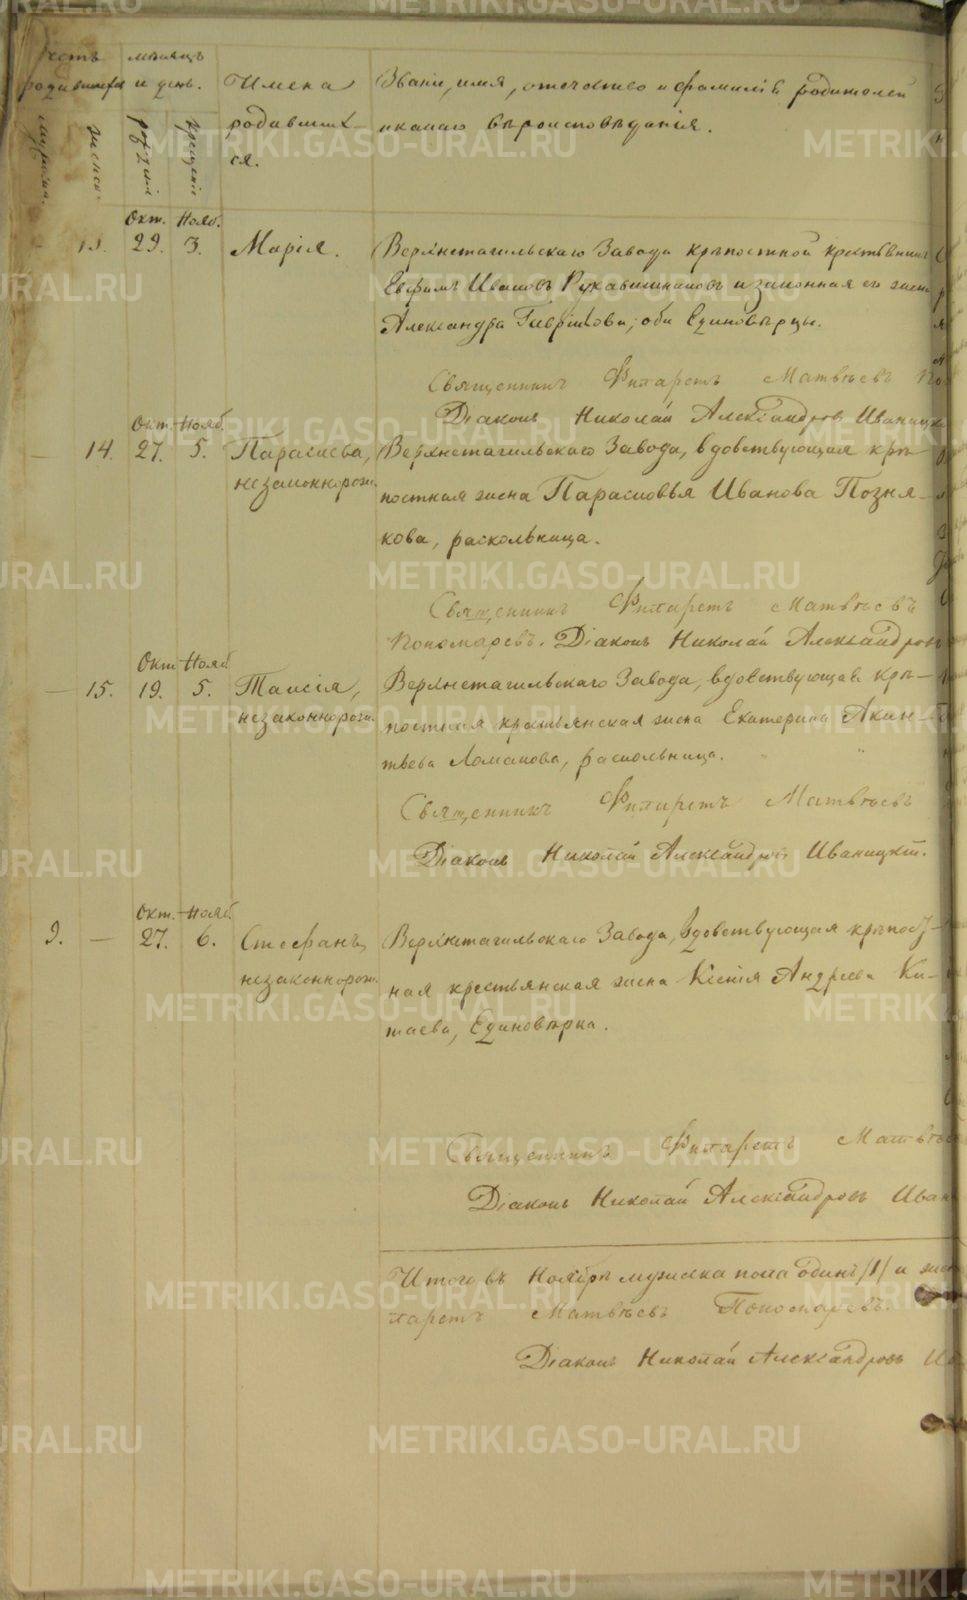 METRIKI.GASO-URAL.RU
счетъ
родившихся
мѣсяцъ
и день.
Имена
родивших-
ся.
Званіе, имя, отечество и фамилія родителей
и какого вѣроисповѣданія.
мужска.
женска.
рожденія
крещенія
Окт. Нояб.
13. 29. 3. Марія. Верхнетагильскаго Завода крѣпостной крестьянинъ
Ефимъ Ивановъ Рукавишниковъ и законная его жена
Александра Гаврилова; оба Единовѣрцы.
Священникъ Филаретъ Матвѣевъ По
Діаконъ Николай Александровъ Иваницк
Окт. Нояб.
— 14. 27. 5. Параскева, Верхнетагильскаго Завода, вдовствующая крѣ-
незаконнорож. постная жена Парасковья Иванова Позня-
кова, раскольница.
Священникъ Филаретъ Матвѣевъ
Пономаревъ. Діаконъ Николай Александровъ
Окт. Нояб.
— 15. 19. 5. Таисія, Верхнетагильскаго Завода, вдовствующая крѣ-
незаконнорож. постная крестьянская жена Екатерина Акин-
тьева Ломакова, раскольница.
Священникъ Филаретъ Матвѣевъ
Діаконъ Николай Александровъ Иваницкій.
Окт. Нояб.
9. — 27. 6. Стефанъ, Верхнетагильскаго Завода, вдовствующая крѣпост-
незаконнорож. ная крестьянская жена Ксенія Андреева Ки-
таева, Единовѣрка.
Священникъ Филаретъ Матвѣев
Діаконъ Николай Александровъ Иван
Итого въ Ноябрѣ мужска пола одинъ /1/ и жен
ларетъ Матвѣевъ Пономаревъ.
Діаконъ Николай Александровъ Ив